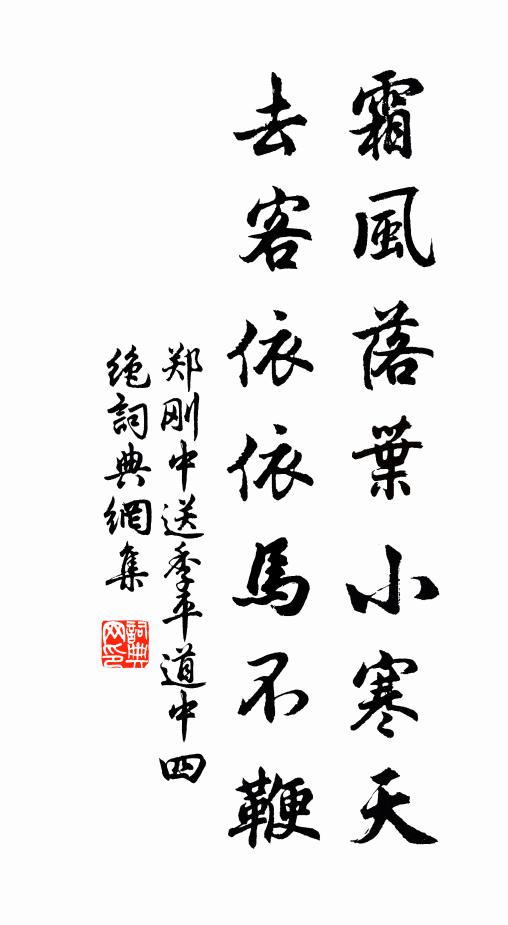 霜風落葉小寒天
去客依依馬不鞭
郑刚中送季平道中四
绝詞典網集
詞典
网印